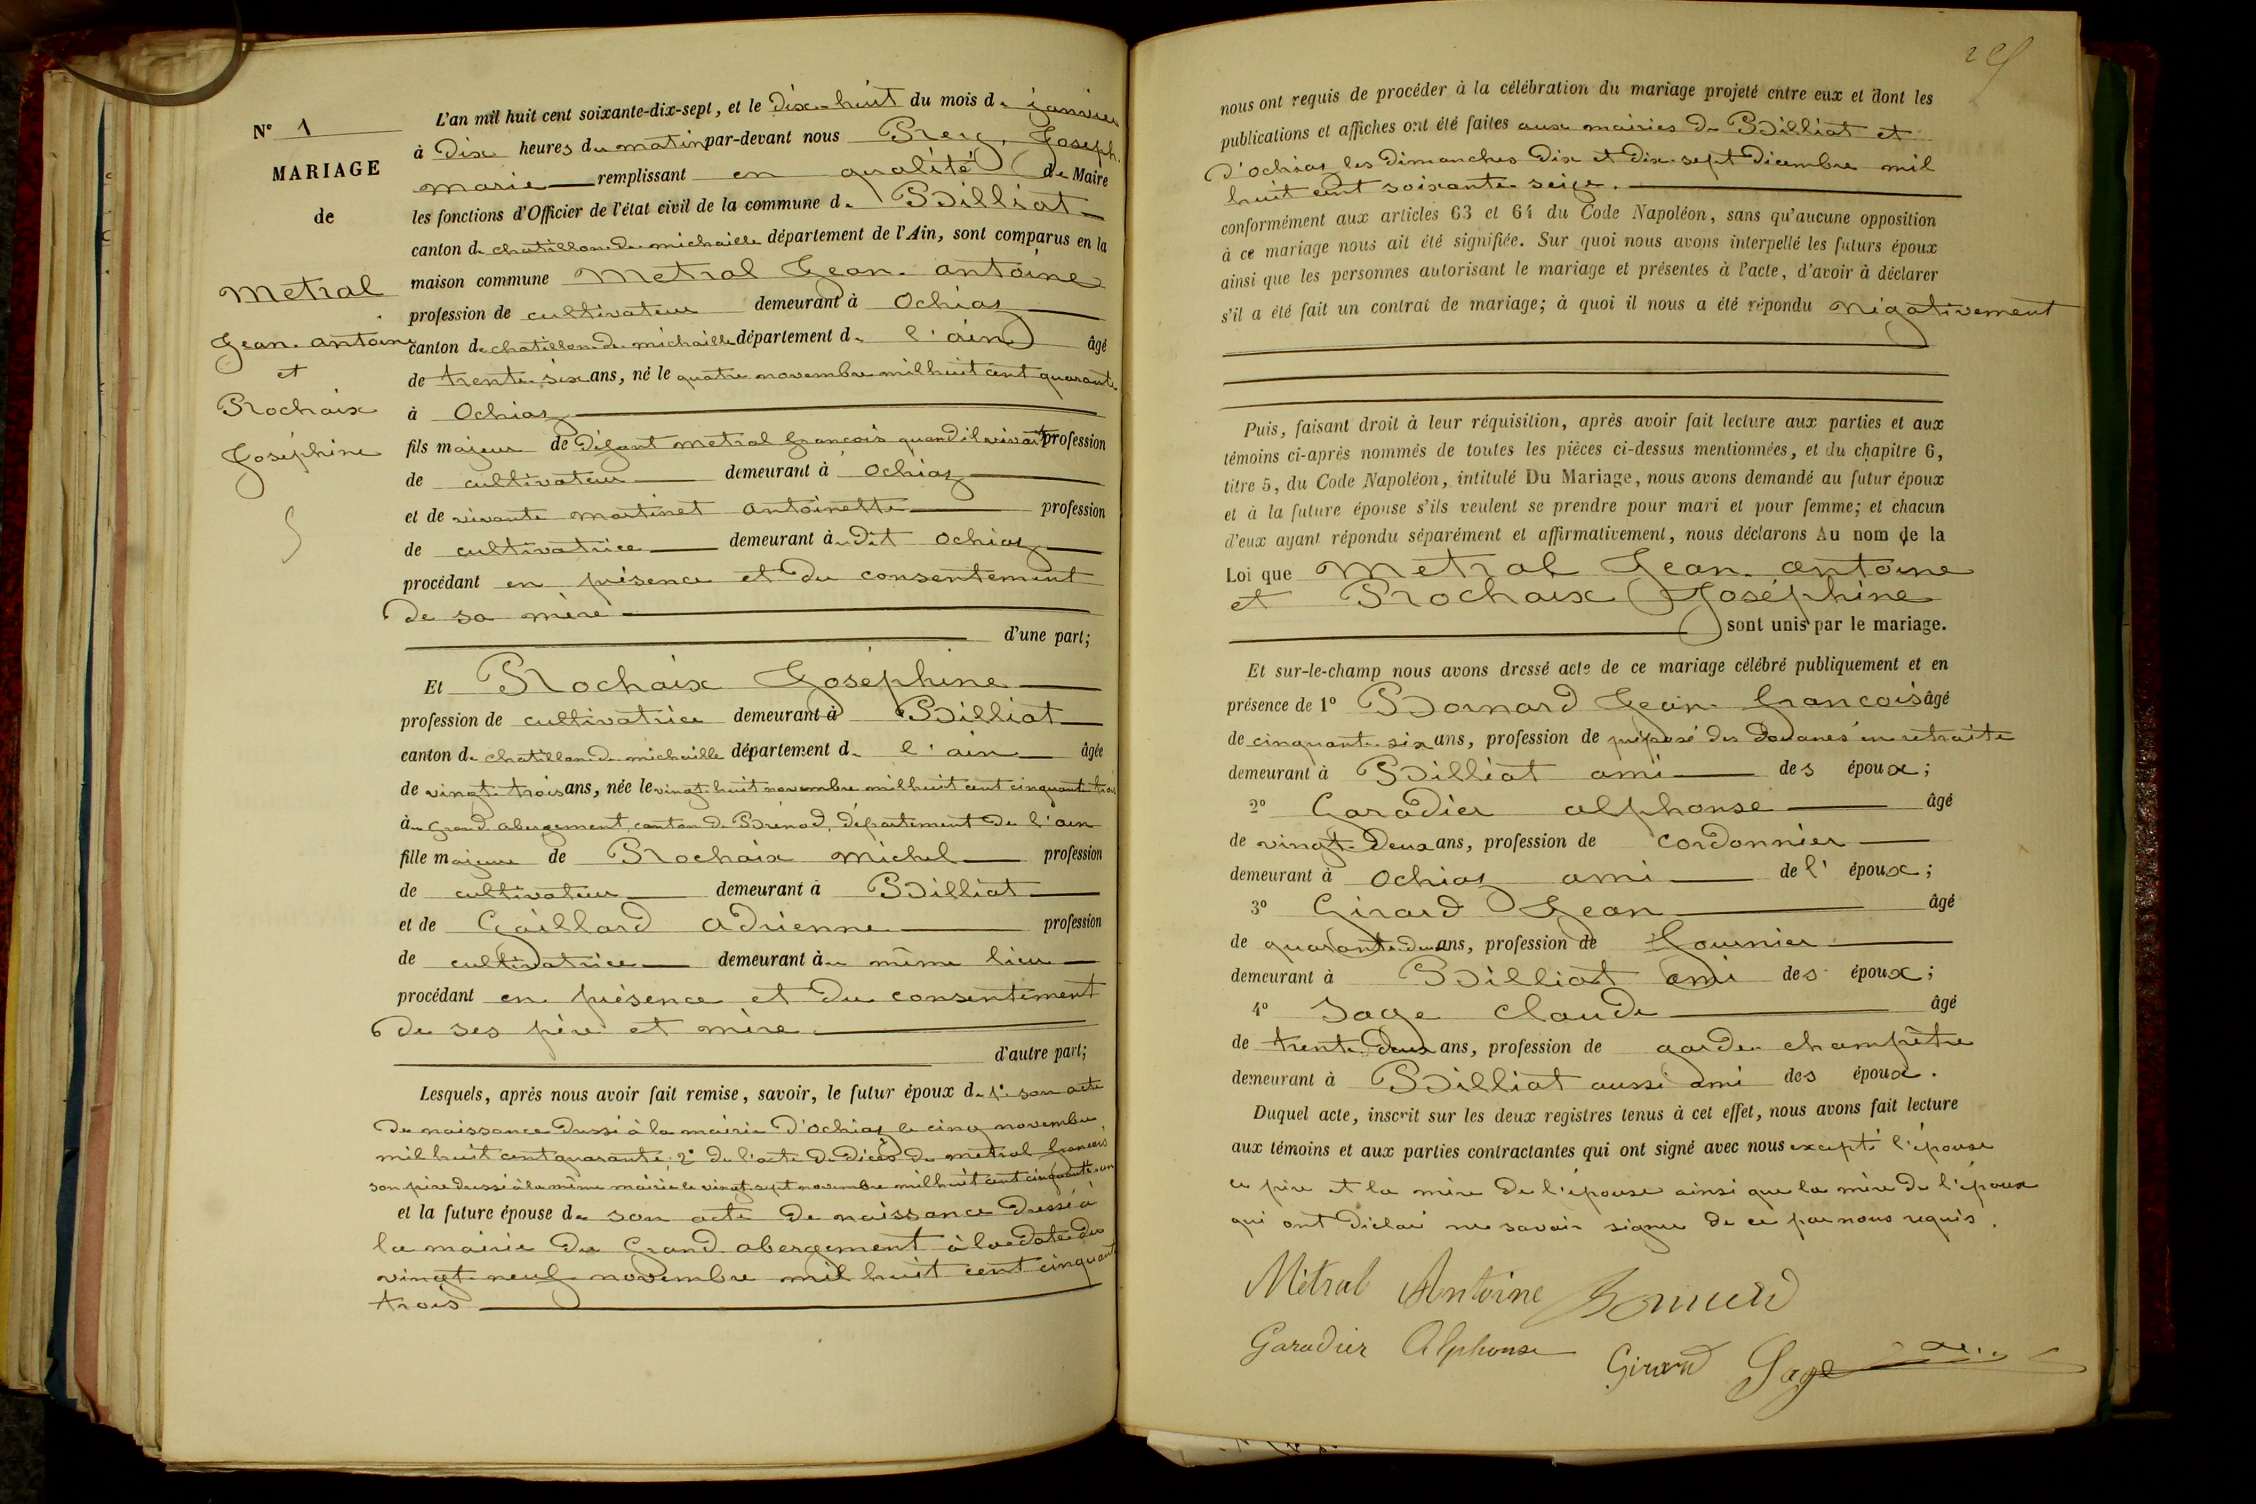 N° 1
MARIAGE
de
Metral
Jean-antoine
et
Rochaix
Joséphine
L'an mil huit cent soixante-dix-sept, et le dix-huit du mois de janvier
à dix heures du matin par-devant nous Rey, Joseph
marie remplissant en qualité de Maire
les fonctions d'Officier de l'état civil de la commune de Billiat
canton de chatillon-de-michaille département de l'Ain, sont comparus en la
maison commune Metral Jean-antoine
profession de cultivateur demeurant à Ochiaz
canton de chatillon-de-michaille département de l'ain âgé
de trente-six ans, né le quatre novembre mil huit cent quarante
à Ochiaz
fils majeur de défunt metral françois quand il vivait profession
de cultivateur demeurant à Ochiaz
et de vivante martinet antoinette profession
de cultivatrice demeurant à dit Ochiaz
procédant en présence et du consentement
de sa mère
d'une part;
Et Rochaix Joséphine
profession de cultivatrice demeurant à Billiat
canton de chatillon-de-michaille département de l'ain âgée
de vingt-trois ans, née le vingt-huit novembre mil huit cent cinquante trois
au grand abergement, canton de Brénod, département de l'ain
fille majeure de Rochaix michel profession
de cultivateur demeurant à Billiat
et de Gaillard adrienne profession
de cultivatrice demeurant au même lieu
procédant en présence et du consentement
de ses père et mère
d'autre part;
Lesquels, après nous avoir fait remise, savoir, le futur époux de 1° son acte
de naissance dressé à la mairie d'Ochiaz le cinq novembre
mil huit cent quarante; 2° de l'acte de décès de metral françois
son père dressé à la même mairie le vingt-sept novembre mil huit cent cinquante-un
et la future épouse de son acte de naissance dressé à
la mairie du Grand-abergement à la date du
vingt-neuf novembre mil huit cent cinquante
trois
nous ont requis de procéder à la célébration du mariage projeté entre eux et dont les
publications et affiches ont été faites aux mairies de Billiat et
d'Ochiaz les dimanches dix et dix-sept décembre mil
huit cent soixante-seize.
conformément aux articles 63 et 64 du Code Napoléon, sans qu'aucune opposition
à ce mariage nous ait été signifiée. Sur quoi nous avons interpellé les futurs époux
ainsi que les personnes autorisant le mariage et présentes à l'acte, d'avoir à déclarer
s'il a été fait un contrat de mariage; à quoi il nous a été répondu négativement
Puis, faisant droit à leur réquisition, après avoir fait lecture aux parties et aux
témoins ci-après nommés de toutes les pièces ci-dessus mentionnées, et du chapitre 6,
titre 5, du Code Napoléon, intitulé Du Mariage, nous avons demandé au futur époux
et à la future épouse s'ils veulent se prendre pour mari et pour femme; et chacun
d'eux ayant répondu séparément et affirmativement, nous déclarons Au nom de la
Loi que Metral Jean-antoine
et Rochaix Joséphine
sont unis par le mariage.
Et sur-le-champ nous avons dressé acte de ce mariage célébré publiquement et en
présence de 1° Bornard Jean-françois âgé
de cinquante-six ans, profession de préposé des douanes en retraite
demeurant à Billiat ami des époux;
2° Garadier alphonse âgé
de vingt-deux ans, profession de cordonnier
demeurant à Ochiaz ami de l'époux;
3° Girard Jean âgé
de quarante-deux ans, profession de fournier
demeurant à Billiat ami des époux;
4° Sage Claude âgé
de trente-deux ans, profession de garde-champêtre
demeurant à Billiat aussi ami des époux.
Duquel acte, inscrit sur les deux registres tenus à cet effet, nous avons fait lecture
aux témoins et aux parties contractantes qui ont signé avec nous excepté l'épouse
le père et la mère de l'épouse ainsi que la mère de l'époux
qui ont déclaré ne savoir signer de ce par nous requis.
Métral Antoine Bornard
Garadier Alphonse Girard Sage